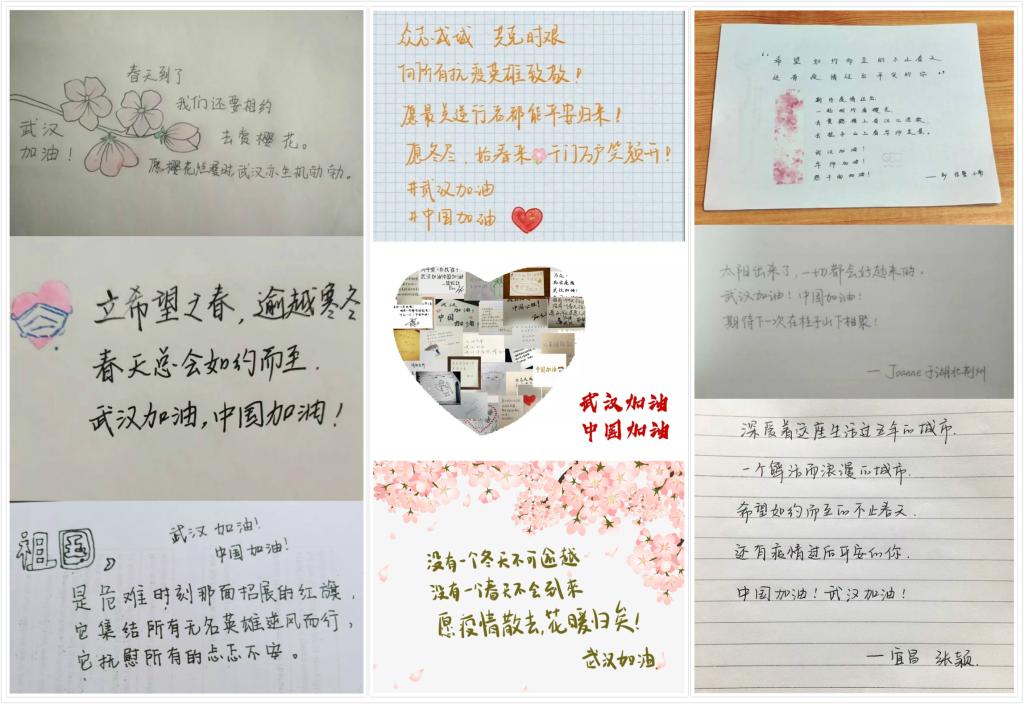 春天到了
我们还要相约
去赏樱花。
武汉
加油！
愿樱花烂漫时，武汉亦生机勃勃。
立希望之春，逾越寒冬
春天总会如约而至.
武汉加油，中国加油！
祖国，
武汉加油！
中国加油！
是危难时刻那面招展的红旗，
它集结所有无名英雄逆风而行，
它抚慰所有的忐忑不安。
众志成城 共克时艰
向所有抗疫英雄致敬！
愿最美逆行者都能平安归来！
愿冬尽，始春来 千门万户笑颜开！
#武汉加油
#中国加油
武汉加油
中国加油
没有一个冬天不可逾越
没有一个春天不会到来
愿疫情散去，花暖归矣！
武汉加油.
“希望如约而至的不止春天
还有疫情过后平安的你”
武汉加油！
华师加油！
太阳出来了，一切都会好起来的。
武汉加油！中国加油！
期待下一次在桂子山下相聚！
— Joanne 于湖北荆州
深爱着这座生活过五年的城市.
一个鲜活而浪漫的城市.
希望如约而至的不止春天.
还有疫情过后平安的你.
中国加油！武汉加油！
—宜昌 张颖.